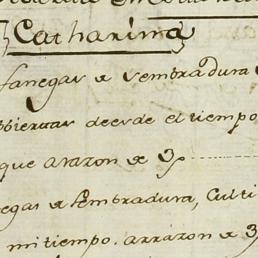 Catharina
fanegas de sembradura
desde el tiempo
que a razon de 3
egas de sembradura, Culti
mi tiempo. a rrazon de 3